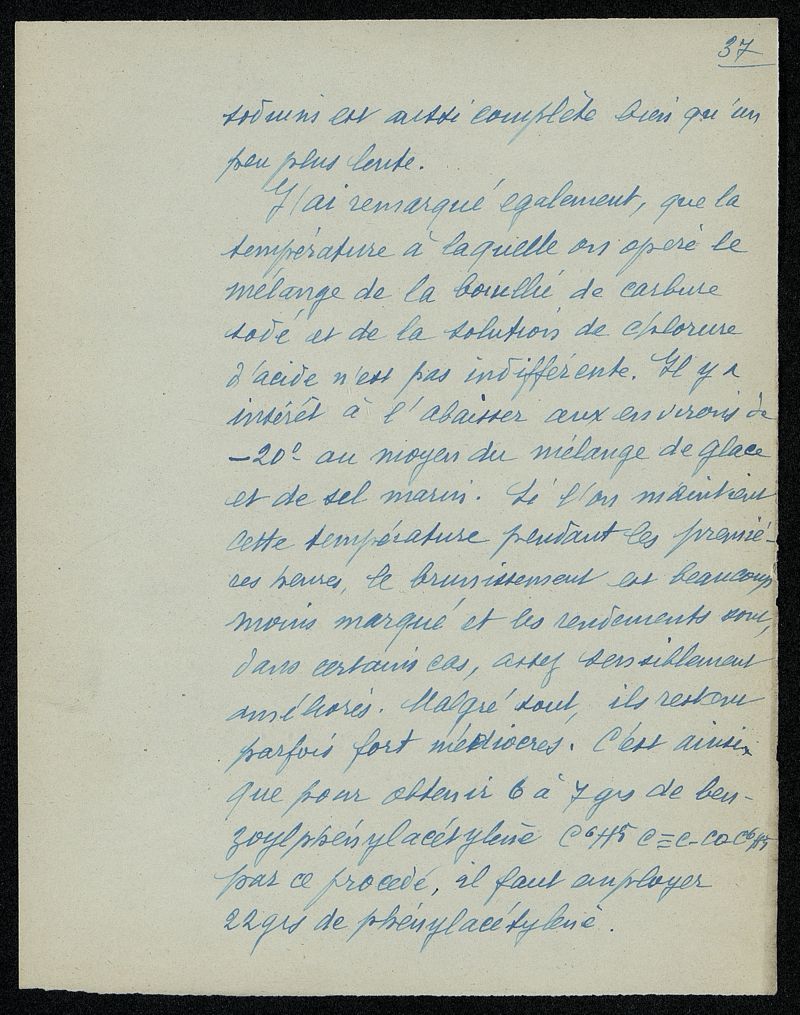 37
sodium est aussi complète bien qu'un
peu plus lente.
J'ai remarqué également, que la
température à laquelle on opère le
mélange de la bouillie de carbure
sodé et de la solution de chlorure
d'acide n'est pas indifférente. Il y a
intérêt à l'abaisser aux environs de
-20° au moyen du mélange de glace
et de sel marin. Si l'on maintient
cette température pendant les premiè-
res heures, le brunissement est beaucoup
moins marqué et les rendements sont,
dans certains cas, assez sensiblement
améliorés. Malgré tout, ils restent
parfois fort médiocres. C'est ainsi
que pour obtenir 6 à 7 grs de ben-
zoylphénylacétylène C⁶H⁵ C≡C-CO C⁶H⁵
par ce procédé, il faut employer
22grs de phénylacétylène.